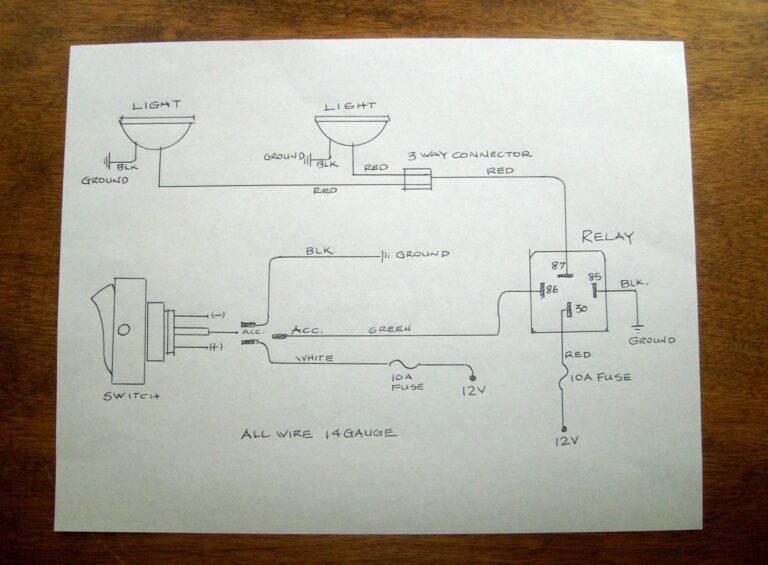 LIGHT
LIGHT
GROUND
BLK
GROUND
BLK
RED
3 WAY CONNECTOR
RED
RED
RELAY
87
86
85
30
BLK.
GROUND
BLK.
GROUND
(-)
ACC.
(+)
ACC.
GREEN
WHITE
10A
FUSE
12V
RED
10A FUSE
12V
SWITCH
ALL WIRE 14 GAUGE